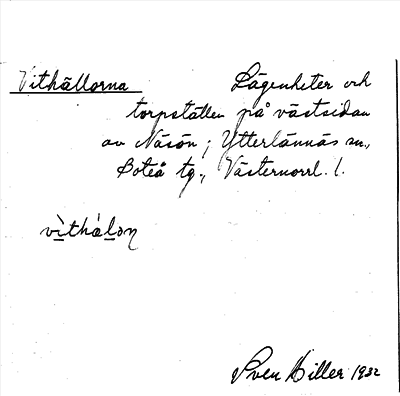 Vithällorna Lägenheter och
torpställen på västsidan
av Näsön; Ytterlännäs sn.,
Boteå tg., Västernorrl. l.
vìthálon
Sven Hiller 1932